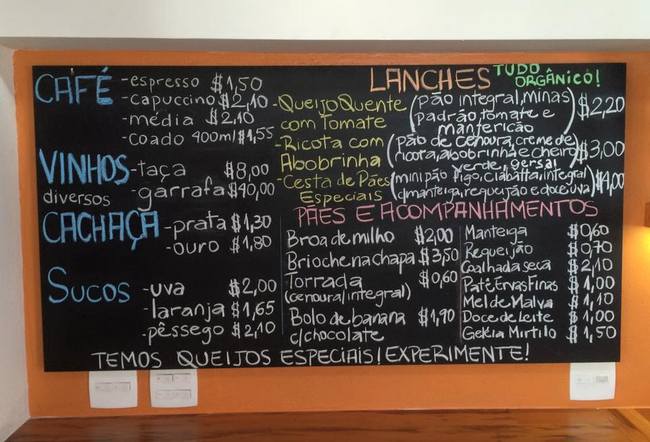 CAFÉ
-espresso $1,50
-capuccino $2,10
-média $2,10
-coado 400ml $1,55
VINHOS
diversos
-taça $8,00
-garrafa $40,00
CACHAÇA
-prata $1,30
-ouro $1,80
SUCOS
-uva $2,00
-laranja $1,65
-pêssego $2,10
LANCHES
TUDO
ORGÂNICO!
-Queijo Quente
com Tomate
(pão integral, minas
padrão, tomate e
manjericão) $2,20
-Ricota com
Abobrinha
(pão de cenoura, creme de
ricota, abobrinha e cheiro
verde, gersal) $3,00
-Cesta de Pães
Especiais
(mini pão trigo, ciabatta, integral
c/manteiga, requeijão e doce uva) $4,00
PÃES E ACOMPANHAMENTOS
Broa de milho $2,00
Brioche na chapa $3,50
Torrada $0,60
(cenoura/integral)
Bolo de banana $1,90
c/chocolate
Manteiga $0,60
Requeijão $0,70
Coalhada seca $2,10
Patê Ervas Finas $1,00
Mel de Malva $1,10
Doce de Leite $1,00
Geléia Mirtilo $1,50
TEMOS QUEIJOS ESPECIAIS! EXPERIMENTE!